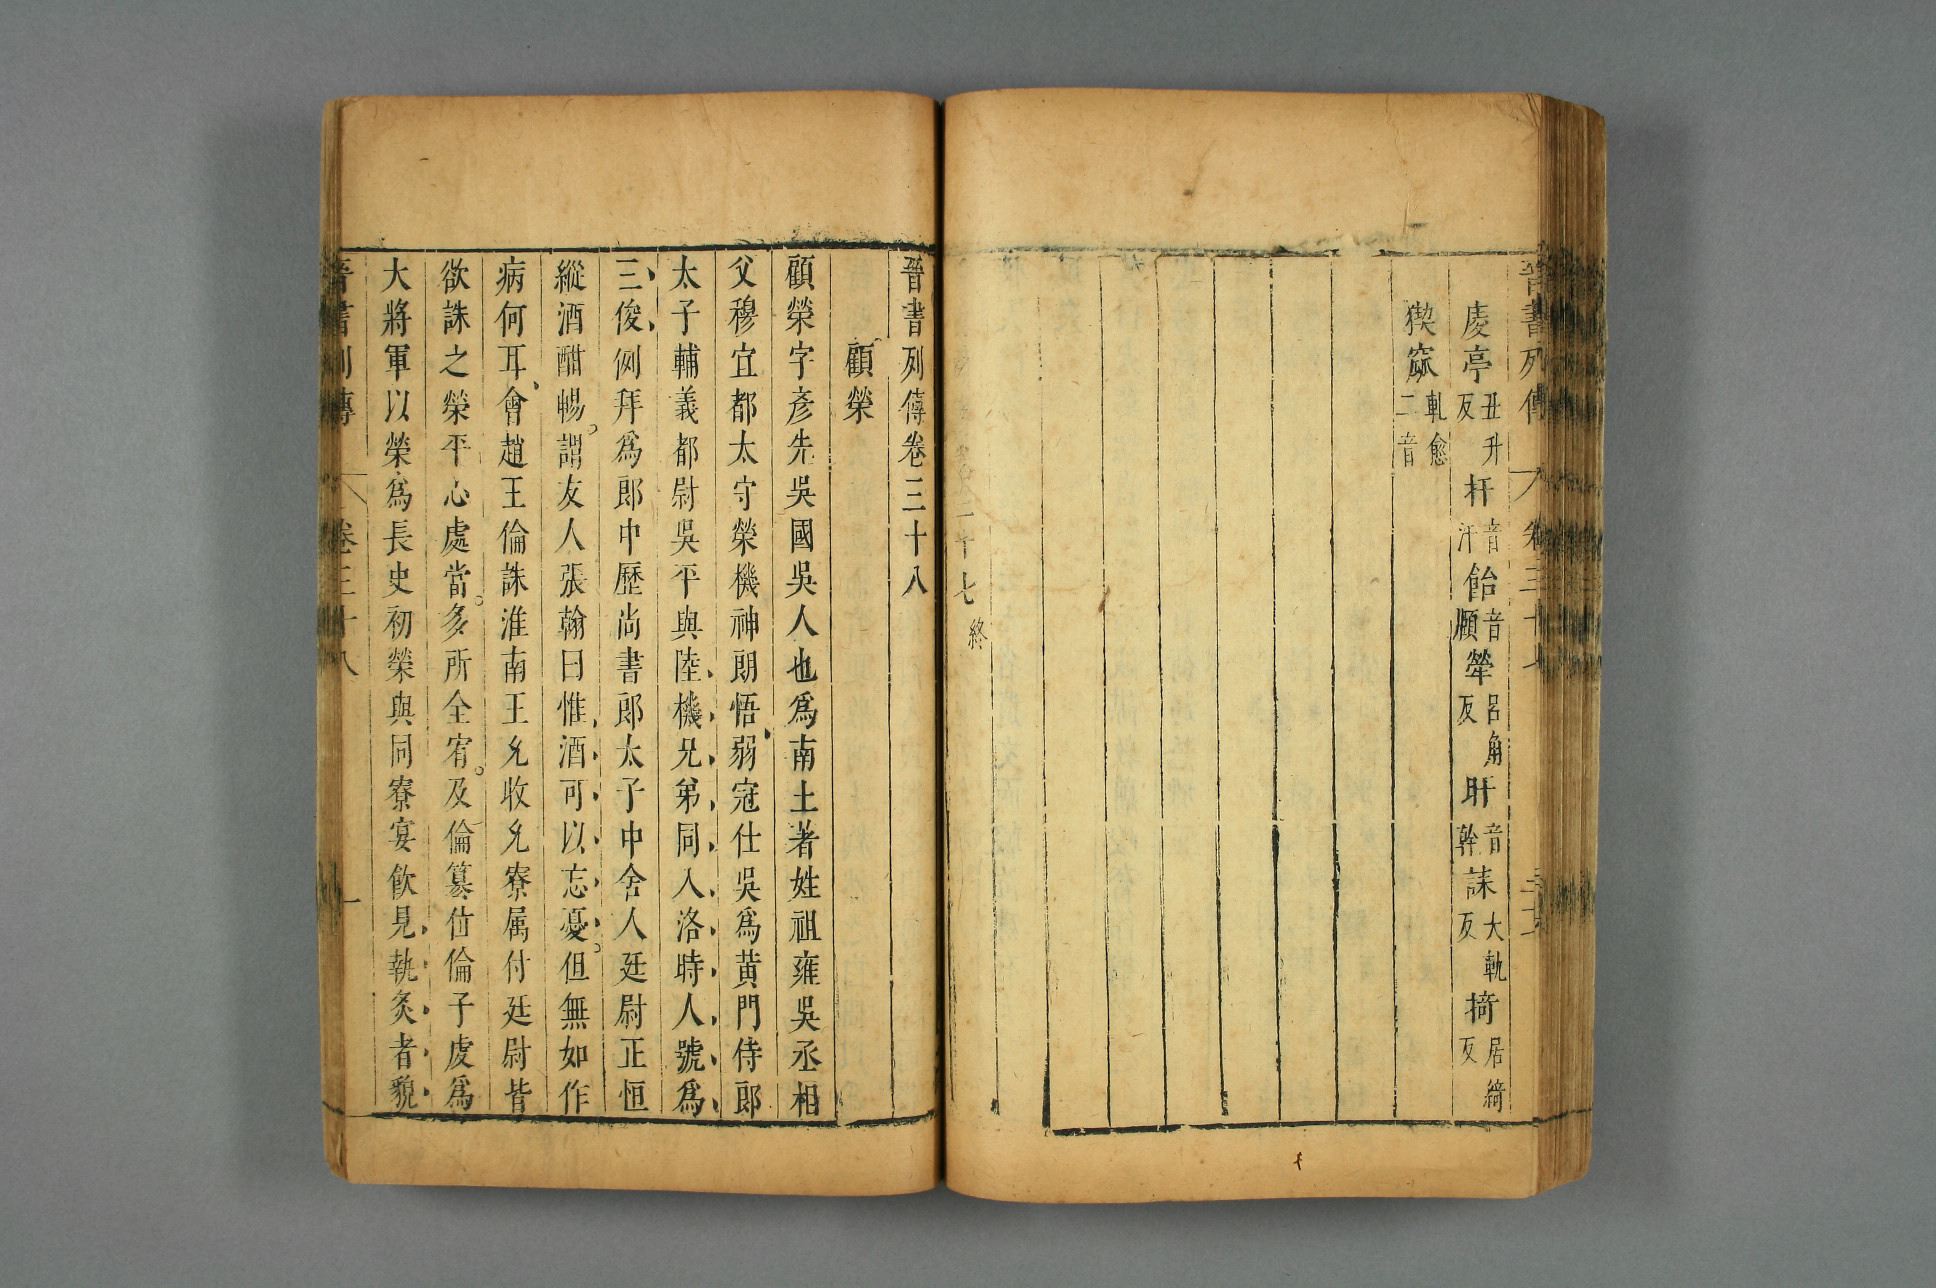 晉書列傳 卷三十七
慶亭丑升反 杆音汗 飴音頤 犖呂角反 肝音幹 誄大軌反 掎居綺反
猰窳軋愈二音
七終
晉書列傳卷三十八
顧榮
顧榮字彥先吳國吳人也爲南土著姓祖雍吳丞相
父穆宜都太守榮機神朗悟弱冠仕吳爲黄門侍郎
太子輔義都尉吳平與陸機兄弟同入洛時人號爲
三俊例拜爲郎中歷尚書郎太子中舍人廷尉正恒
縱酒酣暢謂友人張翰曰惟酒可以忘憂但無如作
病何耳會趙王倫誅淮南王允收允寮属付廷尉皆
欲誅之榮平心處當多所全宥及倫篡位倫子虔爲
大將軍以榮爲長史初榮與同寮宴飲見執炙者貌
晉書列傳 卷三十八 一